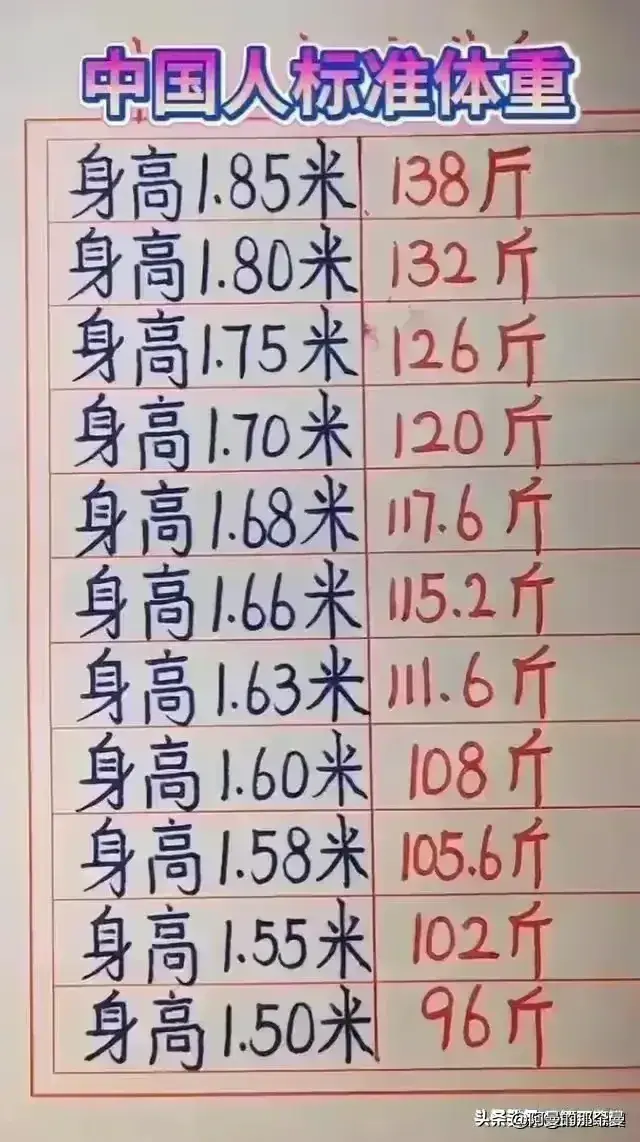 中国人标准体重
身高1.85米 138斤
身高1.80米 132斤
身高1.75米 126斤
身高1.70米 120斤
身高1.68米 117.6斤
身高1.66米 115.2斤
身高1.63米 111.6斤
身高1.60米 108斤
身高1.58米 105.6斤
身高1.55米 102斤
身高1.50米 96斤